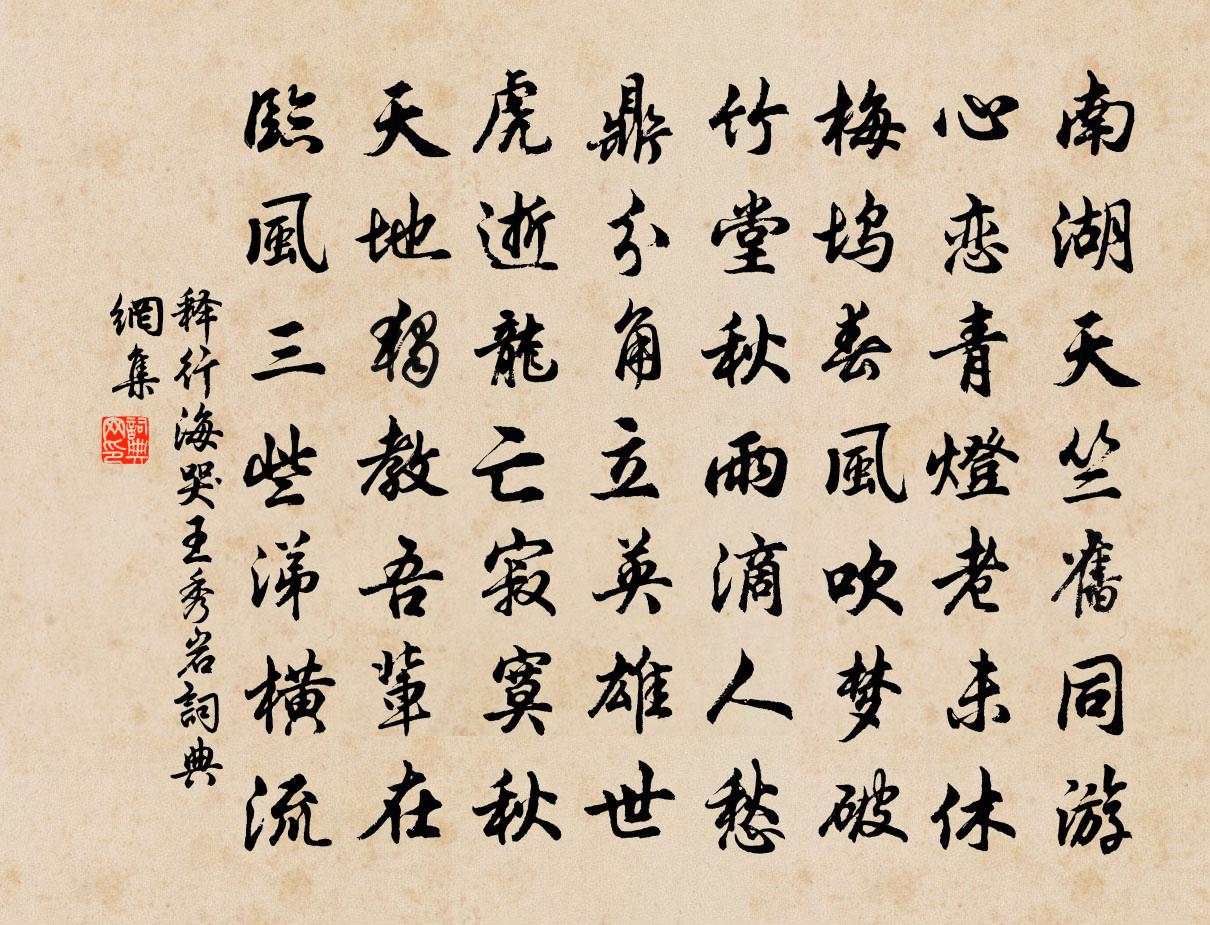 南湖天竺舊同游
心恋青燈老未休
梅坞春風吹梦破
竹堂秋雨滴人愁
鼎分角立英雄世
虎逝龍亡寂寞秋
天地獨教吾輩在
臨風三些涕橫流
释行海哭王秀岩詞典
網集
詞典网印